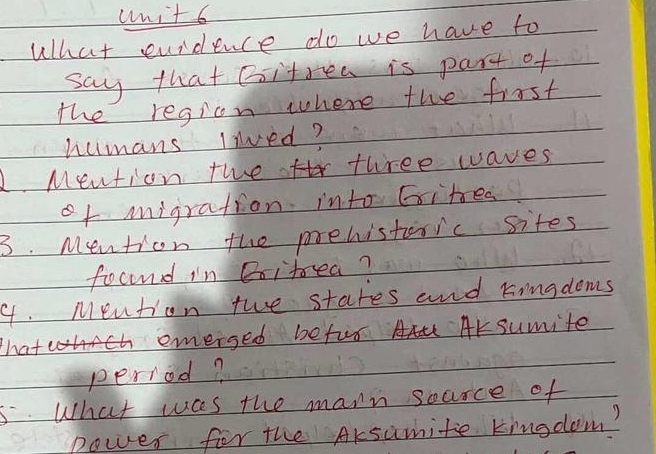 Unit 6
. What evidence do we have to
say that Eritrea is part of
the region where the first
humans lived ?
2. Mention the three waves
of migration into Eritrea
3. Mention the prehistoric sites
found in Eritrea ?
4. Mention the states and kingdoms
that which emerged befur Aksumite
period ?
5. What was the main source of
power for the Aksamite kingdom ?